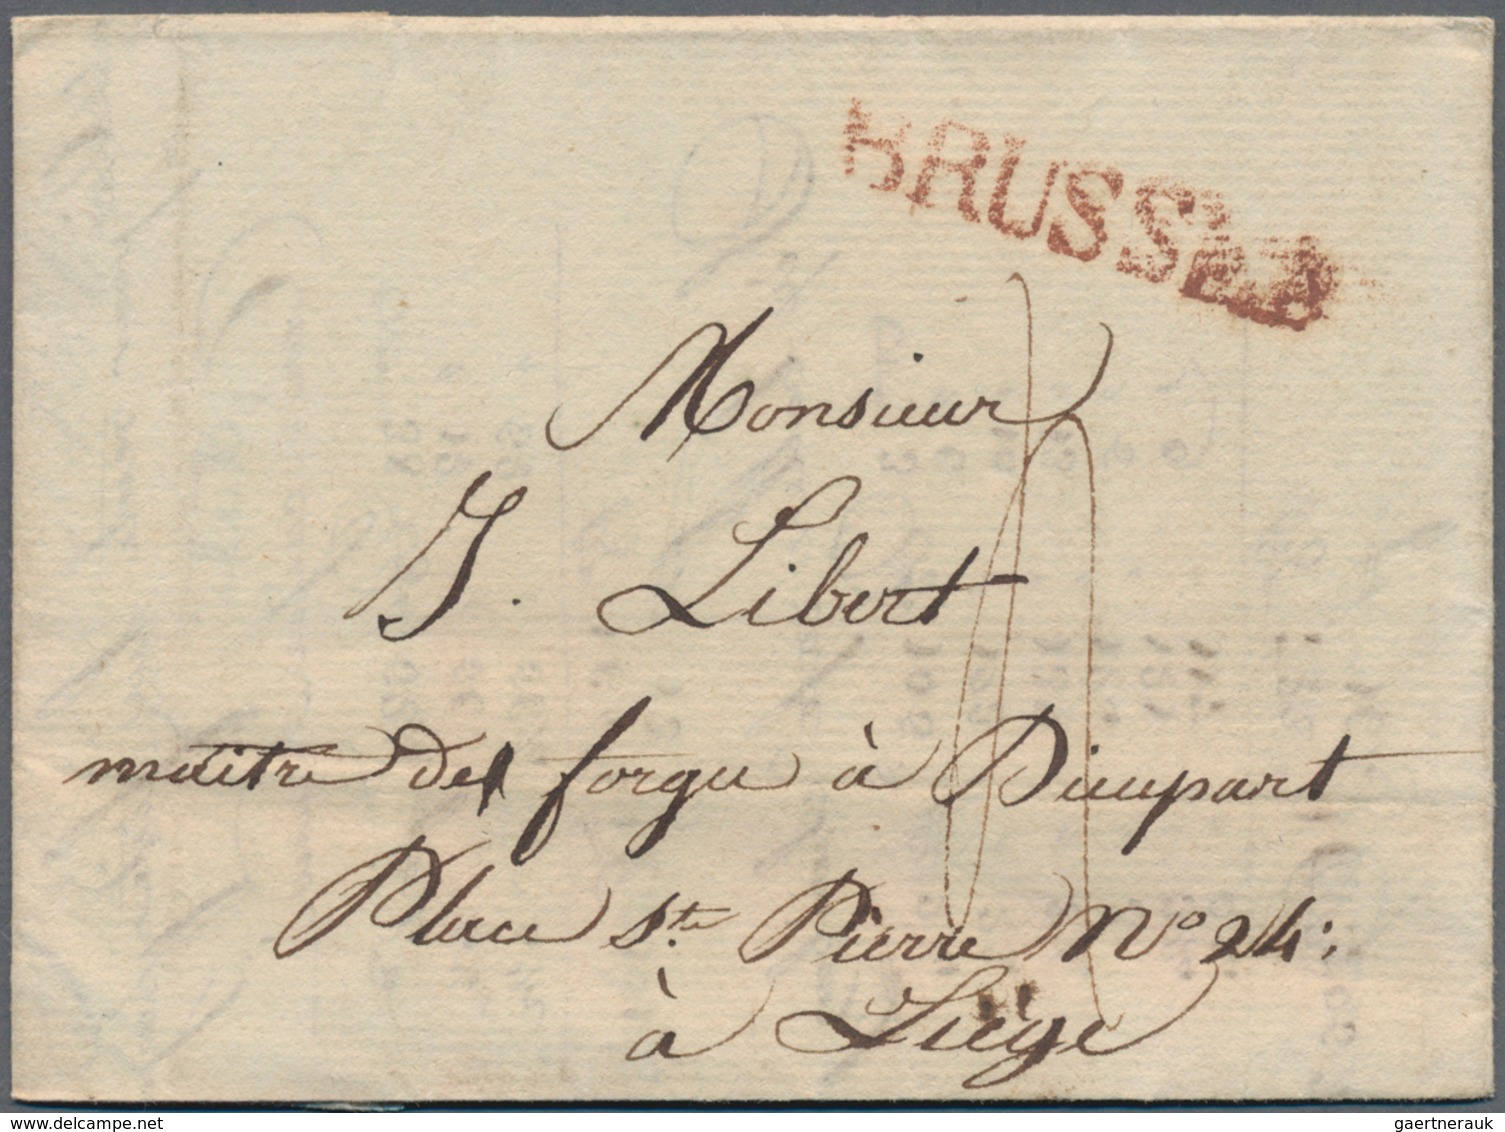 BRUSSEL
Monsieur
J. Libert
maitre de forge à Dieupart
Place St. Pierre No 24
à Liège
gaertnerauk / www.delcampe.net